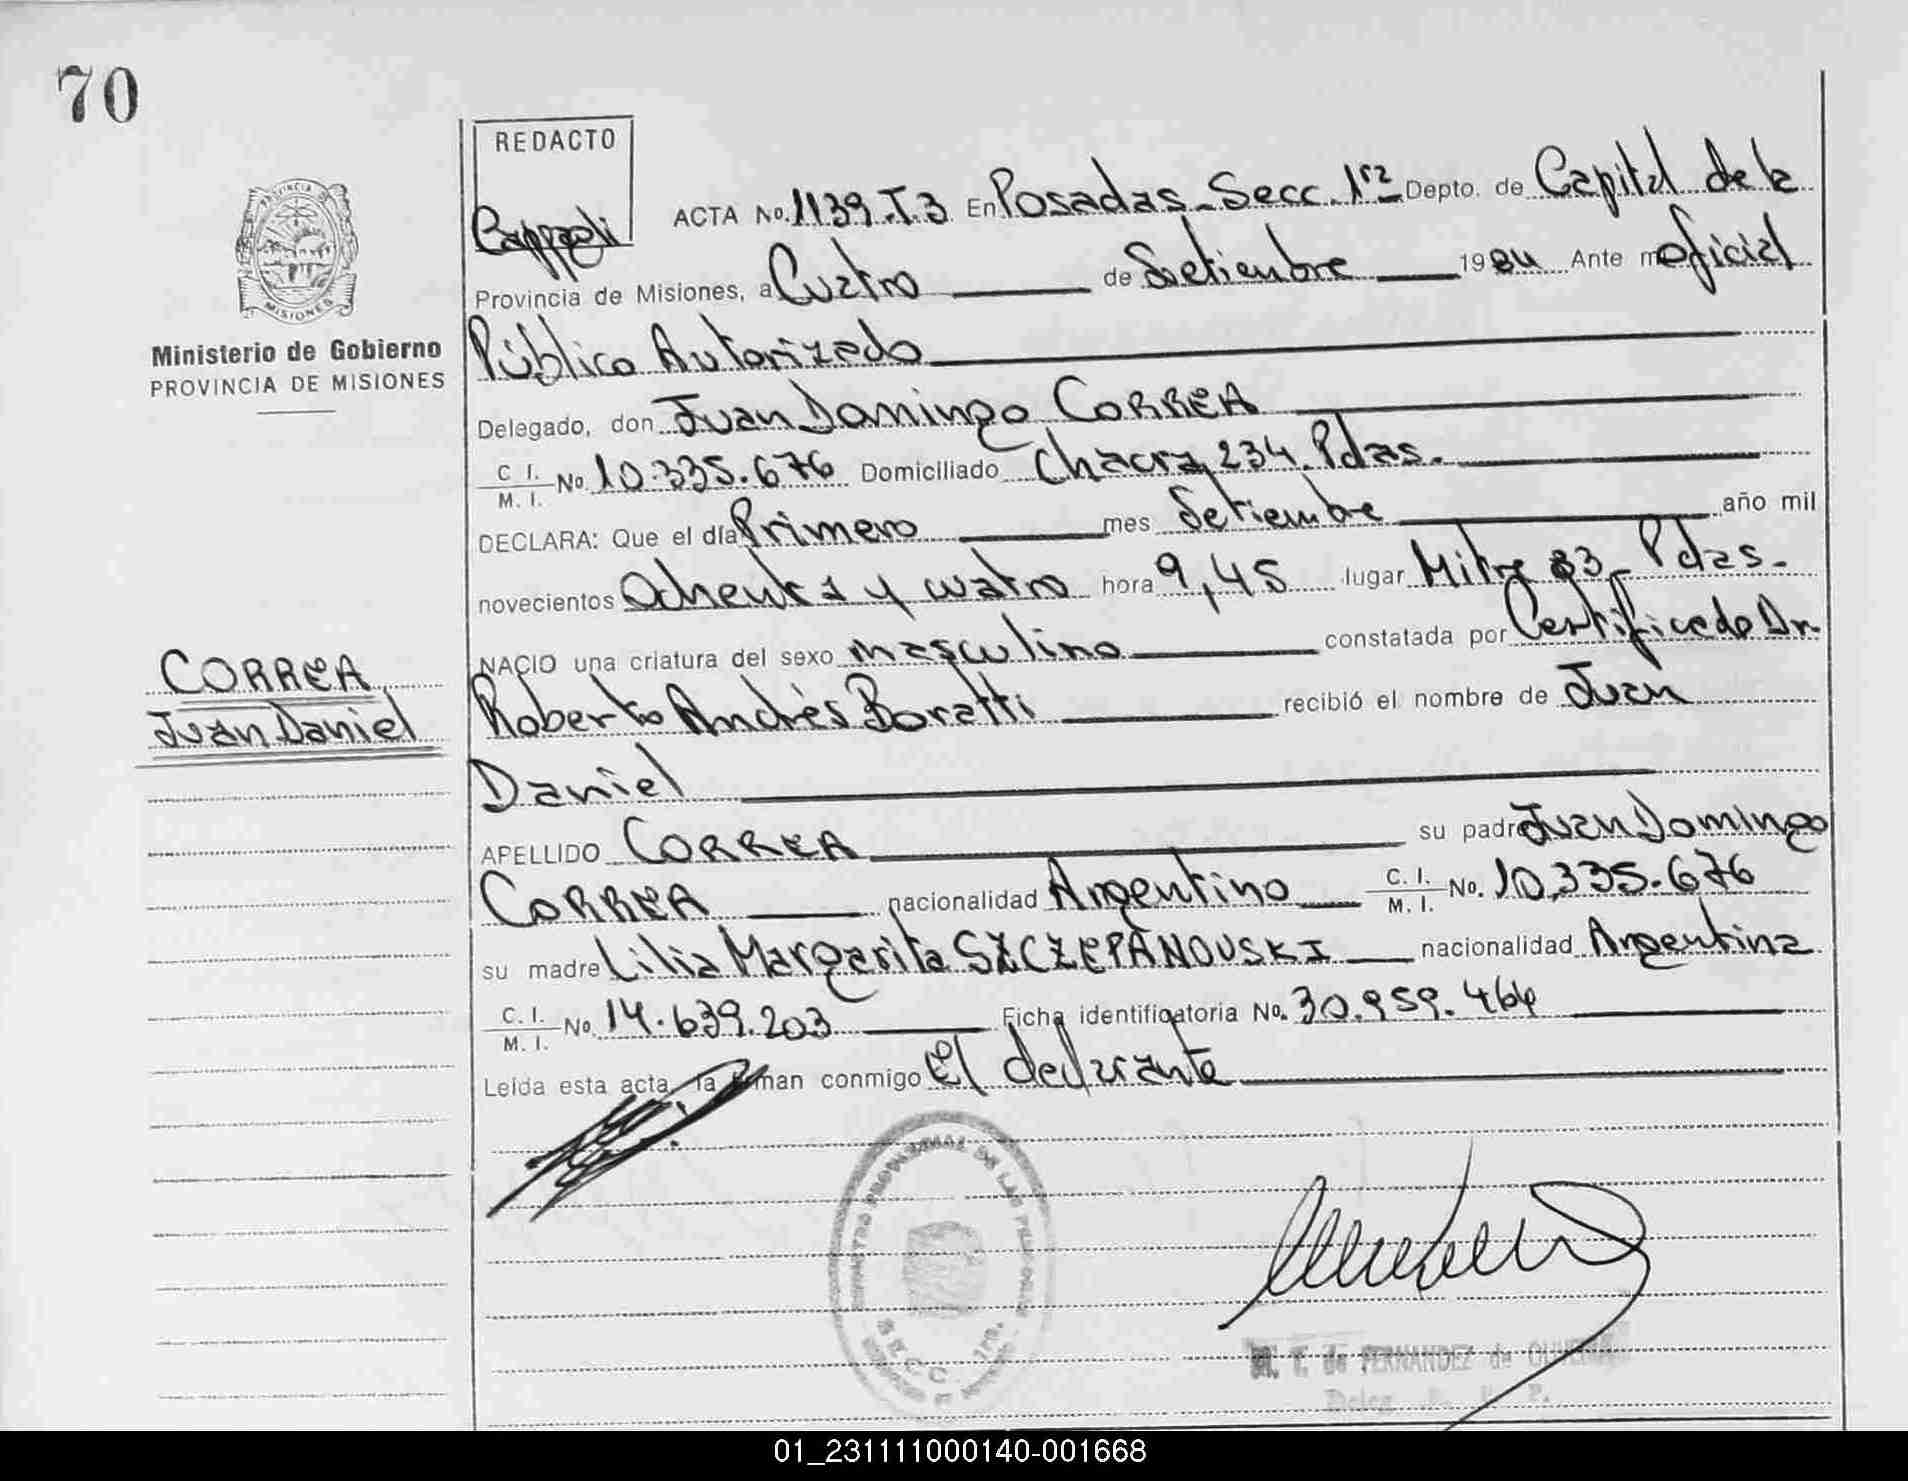 70
REDACTO
ACTA No. 1139.T.3 En Posadas_Secc.1ra Depto. de Capital de la
Provincia de Misiones, a Cuatro de Setiembre 1984 Ante mi oficial
PROVINCIA DE
MISIONES
Ministerio de Gobierno
PROVINCIA DE MISIONES
Público Autorizado
Delegado, don Juan Domingo CORREA
C. I.
M. I. No. 10.335.676 Domiciliado Chacra 234. Pdas.
DECLARA: Que el día Primero mes Setiembre año mil
novecientos Ochenta y cuatro hora 9,45 lugar Mitre 83_Pdas.
NACIO una criatura del sexo masculino constatada por Certificado Dr.
CORREA
Juan Daniel
Roberto Andrés Boratti recibió el nombre de Juan
Daniel
APELLIDO CORREA su padre Juan Domingo
CORREA nacionalidad Argentino C. I.
M. I. No. 10.335.676
su madre Lilia Margarita SZCZEPANOUSKI nacionalidad Argentina
C. I.
M. I. No. 14.639.203 Ficha identificatoria No. 30.959.464
Leída esta acta, la firman conmigo El declarante
REGISTRO PROVINCIAL DE LAS PERSONAS
SECC. 1ra.
M. T. de FERNANDEZ de OLIVEIRA
01_231111000140-001668